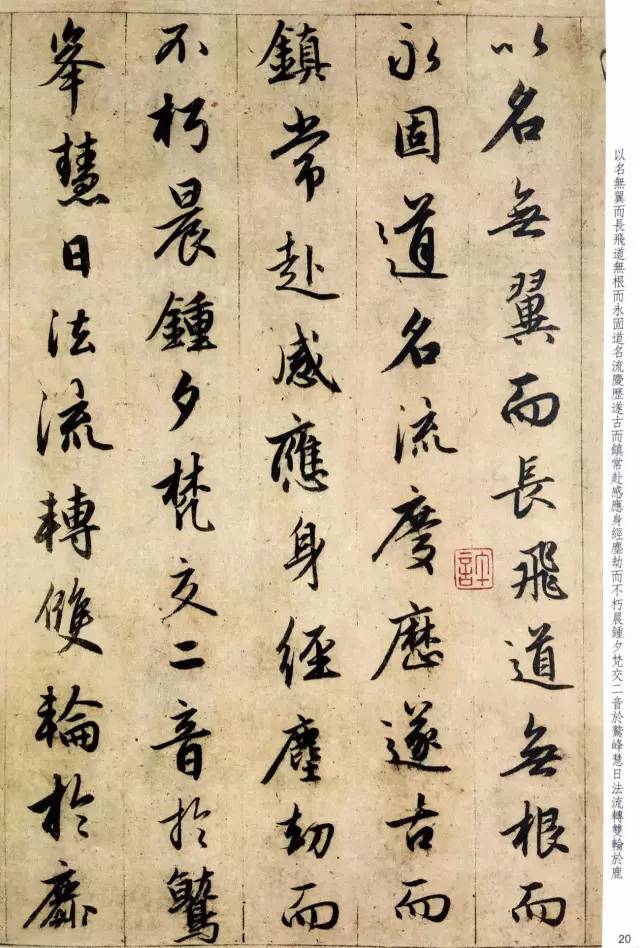 以名無翼而長飛道無根而
永固道名流慶歷遂古而
鎮常赴感應身經塵劫而
不朽晨鍾夕梵交二音於鷲
峯慧日法流轉雙輪於鹿
以名無翼而長飛道無根而永固道名流慶歷遂古而鎮常赴感應身經塵劫而不朽晨鍾夕梵交二音於鷲峰慧日法流轉雙輪於鹿
20